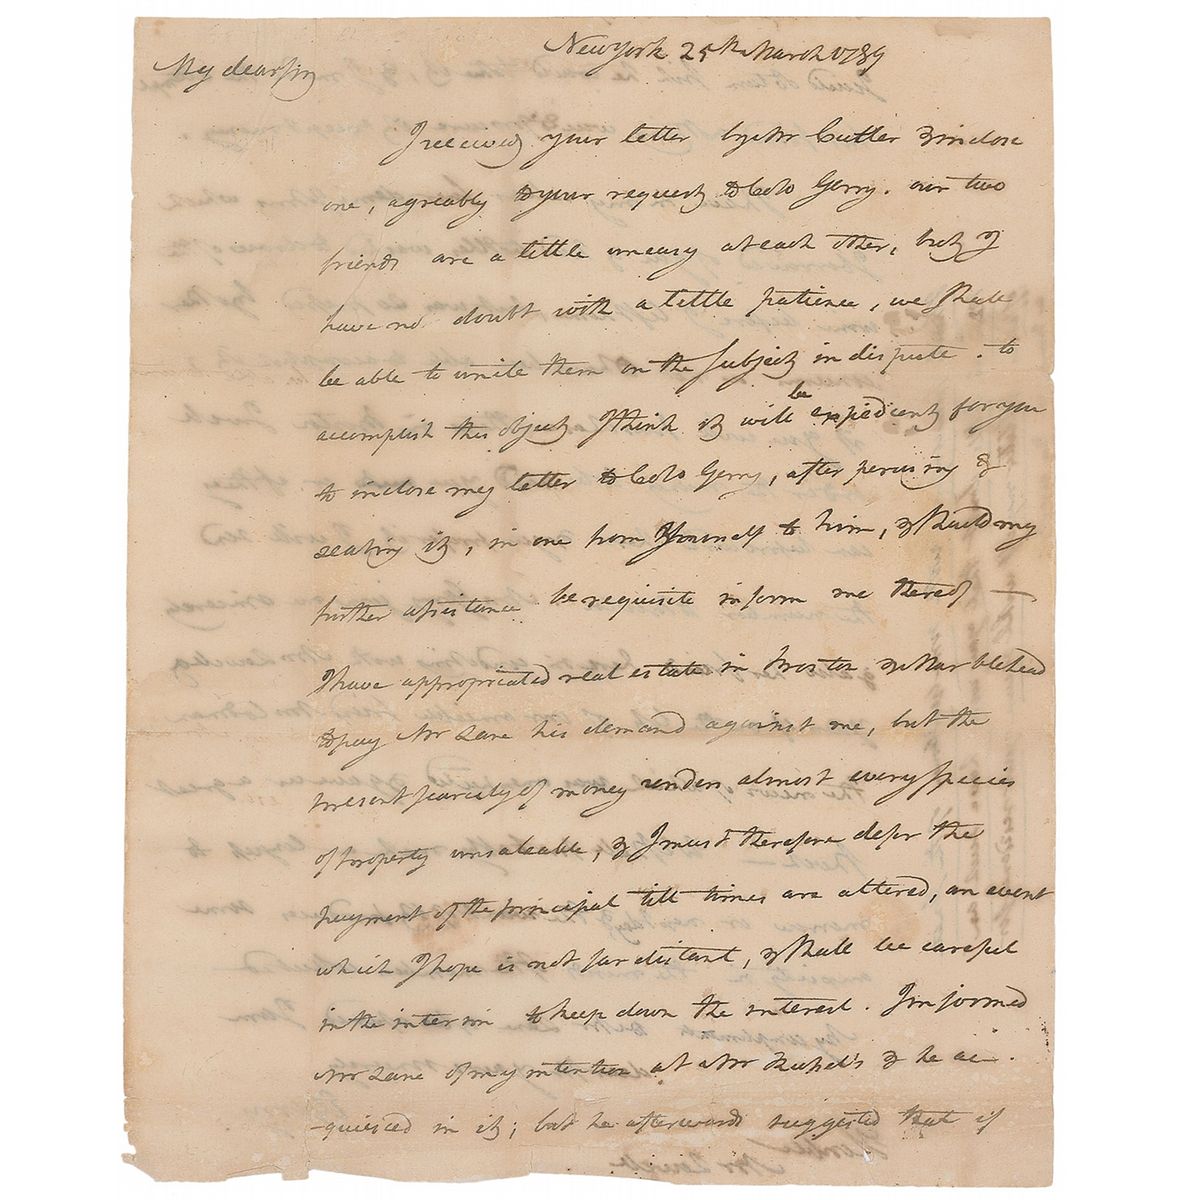 New York 25th March 1789
My dear sir
I received your letter by Mr Cutler & inclose
one, agreably to your request to Colo Gerry. our two
friends are a little uneasy at each other, but I
have no doubt with a little patience, we shall
be able to unite them on the subject in dispute. to
accomplish this object I think it will be expedient for you
to inclose my letter to Colo Gerry, after perusing &
sealing it, in one from yourself to him, & should my
further assistance be requisite inform me thereof —
I have appropriated real estate in Boston & Marblehead
to pay Mr Lane his demand against me, but the
present scarcity of money renders almost every species
of property unsaleable, & I must therefore defer the
payment of the principal till times are altered, an event
which I hope is not far distant, & shall be careful
in the interim to keep down the interest. I informed
Mr Lane of my intention at Mr & he ac-
-quiesced in it; but he afterwards suggested that if